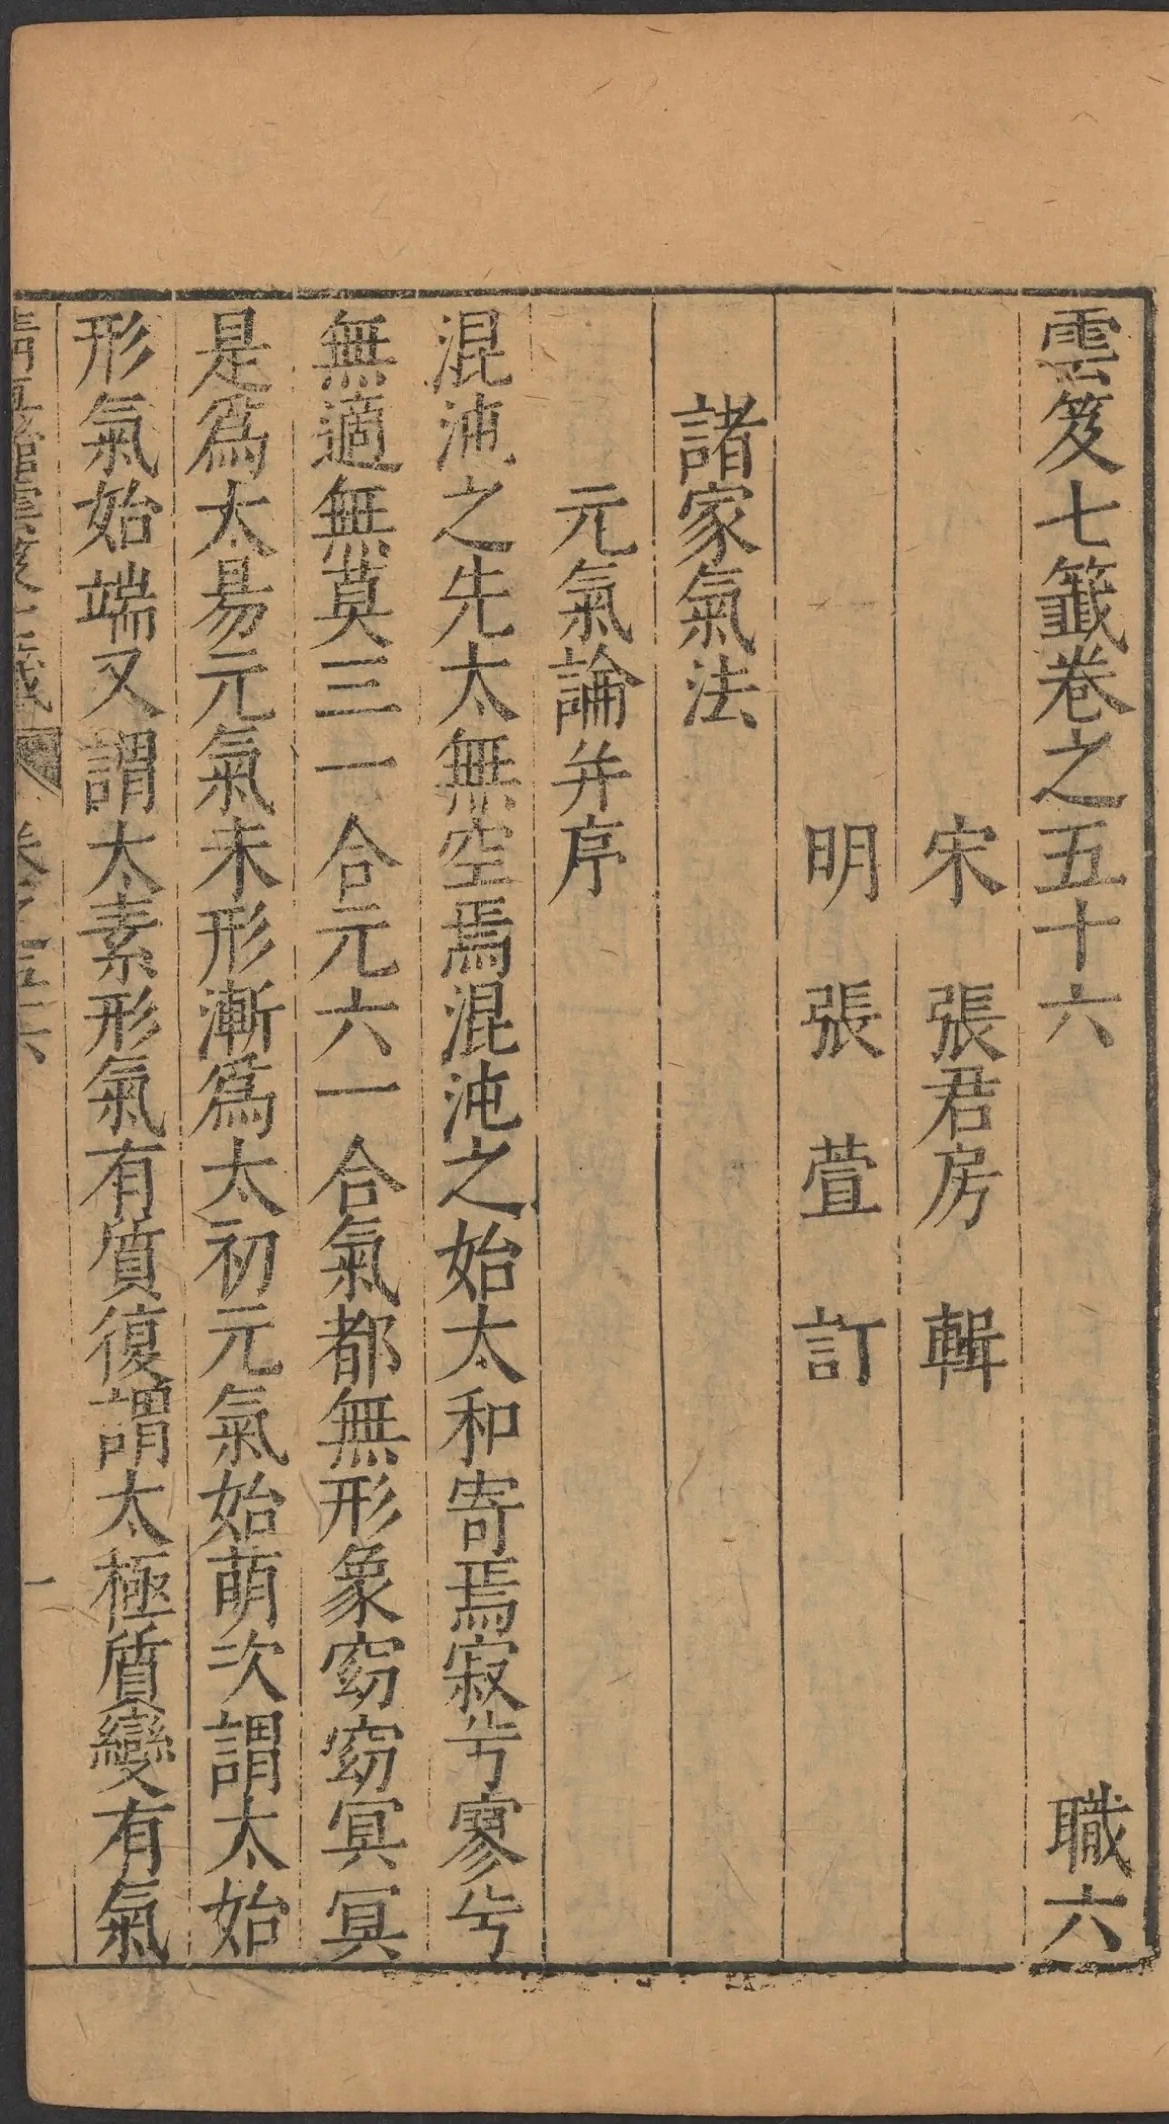 雲笈七籤卷之五十六 職六
宋 張君房 輯
明 張萱 訂
諸家氣法
元氣論并序
混沌之先太無空焉混沌之始太和寄焉寂兮寥兮
無適無莫三一合元六一合氣都無形象窈窈冥冥
是爲太易元氣未形漸爲太初元氣始萌次謂太始
形氣始端又謂太素形氣有質復謂太極質變有氣
卷之五十六 一